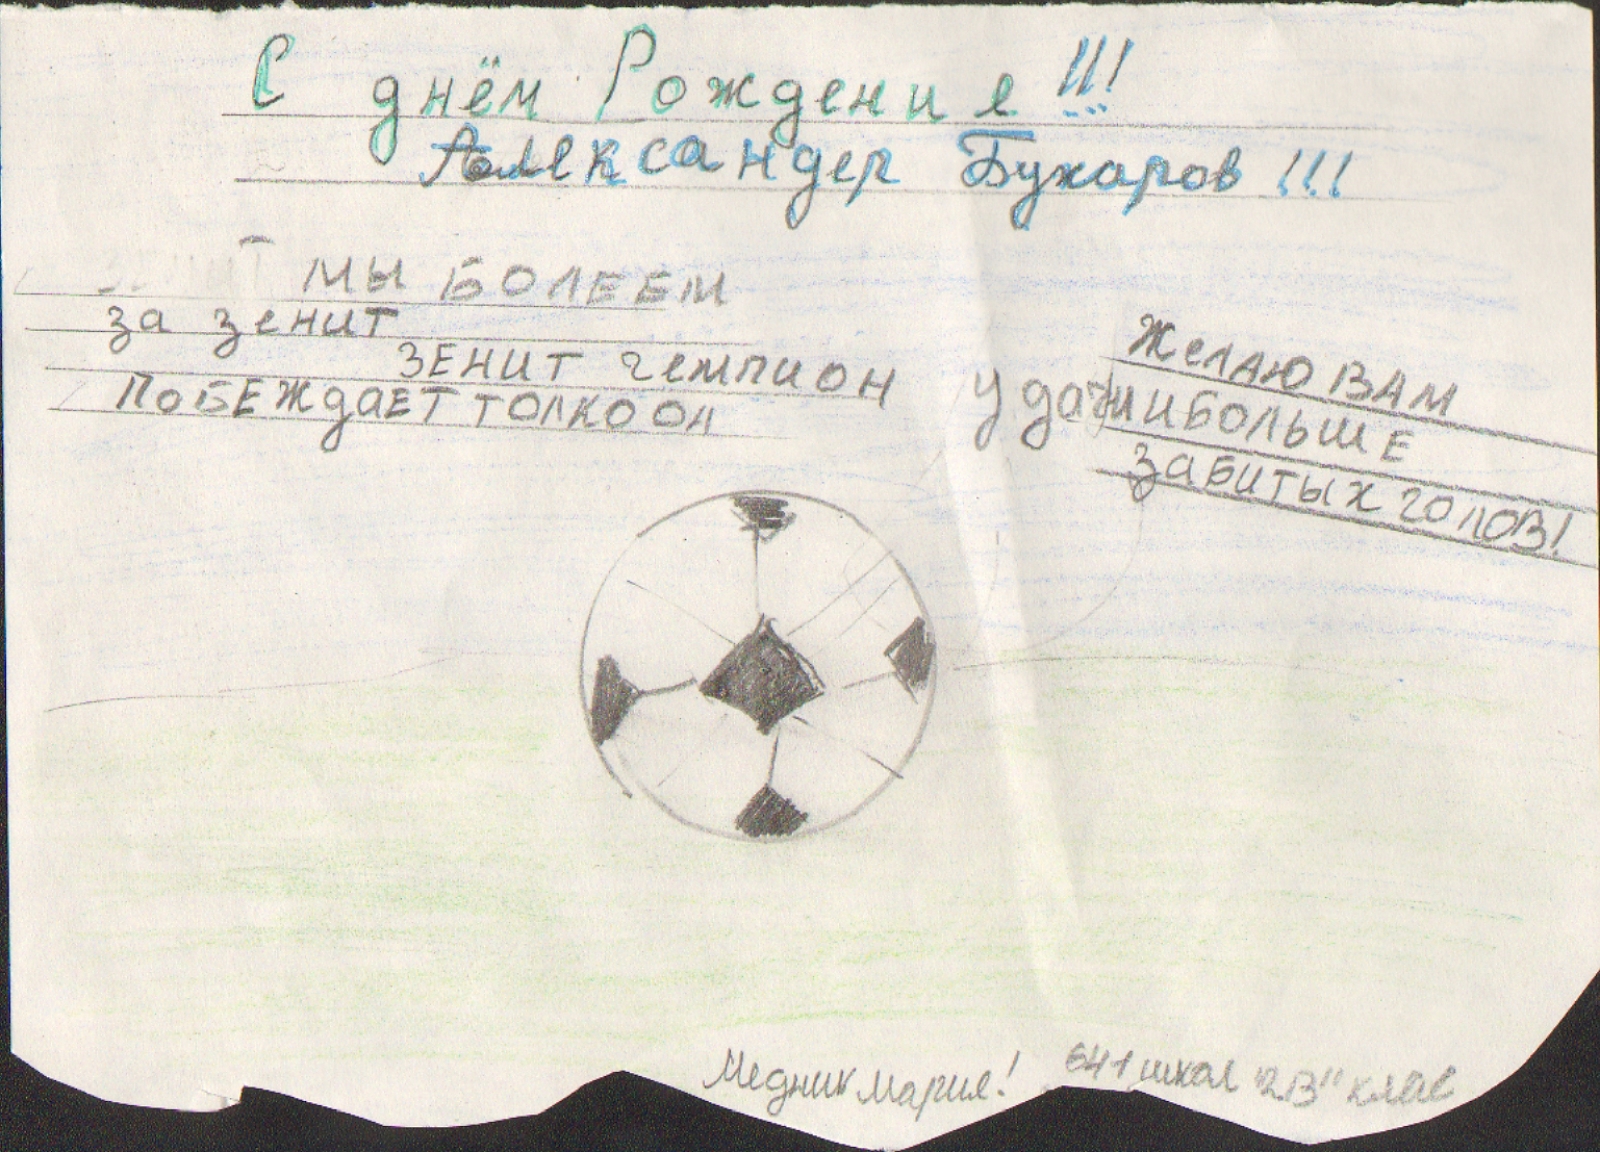 С днём Рождение!!!
Александер Бухаров!!!
МЫ БОЛЕЕМ
за зенит
ЗЕНИТ чемпион
ПОБЕЖДАЕТ ТОЛКО ОН
ЖЕЛАЮ ВАМ
удачи И БОЛЬШЕ
ЗАБИТЫХ ГОЛОВ!
Медник Мария! 641 школ "2В" клас